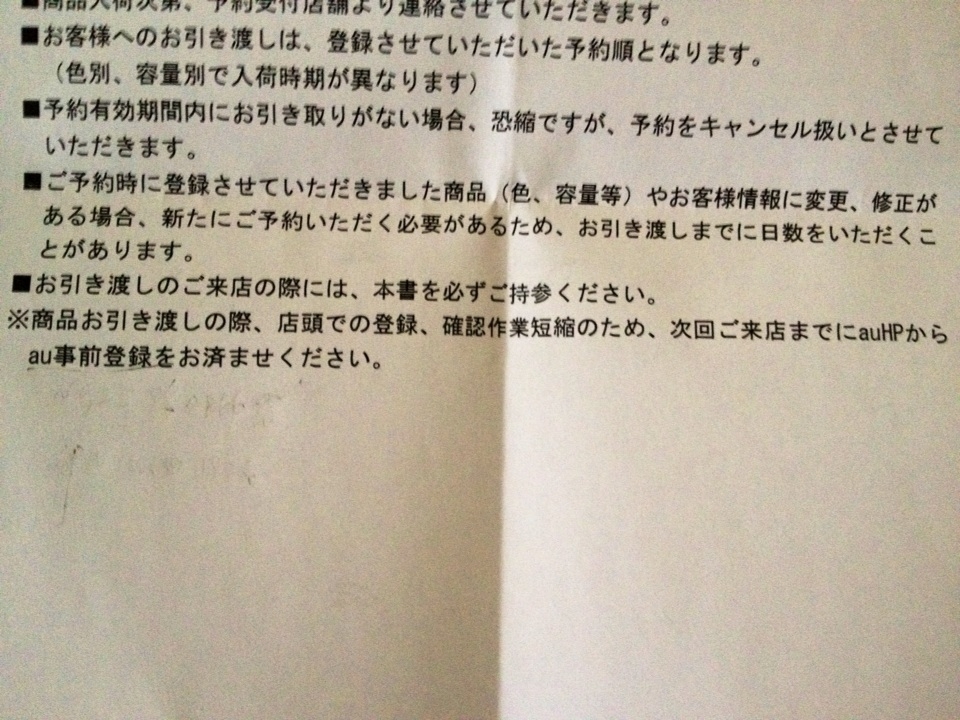 ■商品入荷次第、予約受付店舗より連絡させていただきます。
■お客様へのお引き渡しは、登録させていただいた予約順となります。
（色別、容量別で入荷時期が異なります）
■予約有効期間内にお引き取りがない場合、恐縮ですが、予約をキャンセル扱いとさせて
いただきます。
■ご予約時に登録させていただきました商品（色、容量等）やお客様情報に変更、修正が
ある場合、新たにご予約いただく必要があるため、お引き渡しまでに日数をいただくこ
とがあります。
■お引き渡しのご来店の際には、本書を必ずご持参ください。
※商品お引き渡しの際、店頭での登録、確認作業短縮のため、次回ご来店までにauHPから
au事前登録をお済ませください。